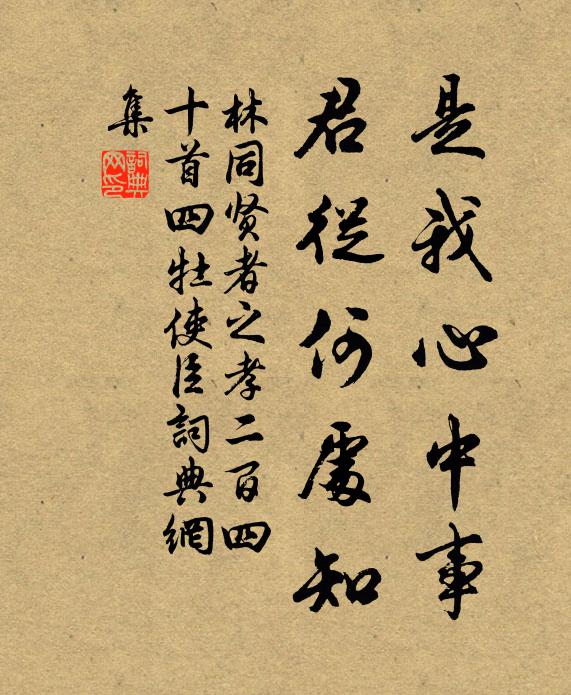 是我心中事
君從何處知
林同贤者之孝二百四
十首四牡使臣詞典網
集
詞典网印